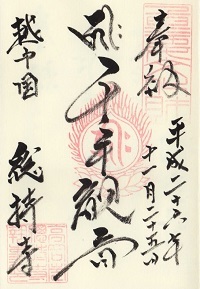 奉拝
平成二十六年
十一月二十五日
千手観音
越中国
総持寺